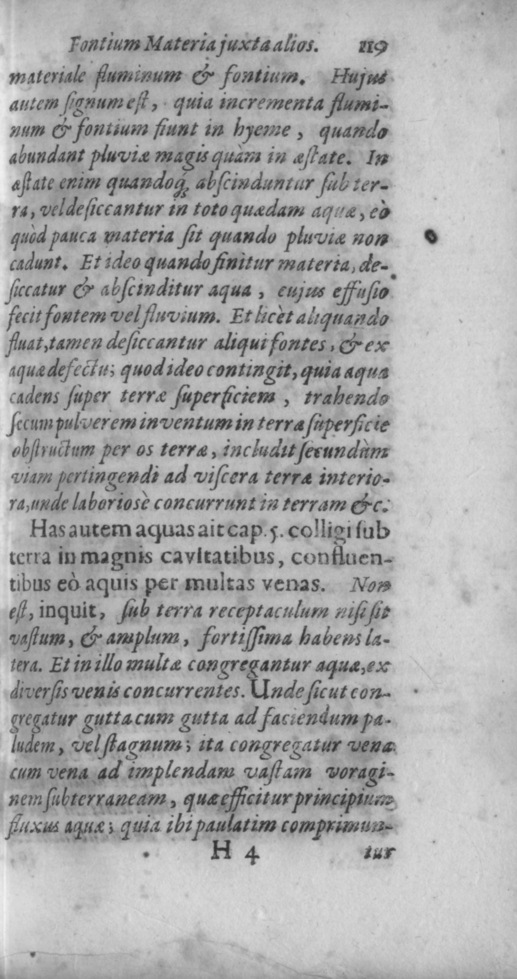 Fontium Materia juxta alios. 119
materiale fluminum & fontium. Hujus
autem ſignum eſt, quia incrementa flumi-
num & fontium fiunt in hyeme, quando
abundant pluviæ magis quàm in æſtate. In
æſtate enim quandoq; abſcinduntur ſub ter-
ra, vel deſiccantur in toto quædam aquæ, eò
quòd pauca materia ſit quando pluviæ non
cadunt. Et ideo quando finitur materia, de-
ſiccatur & abſcinditur aqua, cujus effuſio
fecit fontem vel fluvium. Et licèt aliquando
fluat, tamen deſiccantur aliqui fontes, & ex
aquæ defectu; quod ideo contingit, quia aqua
cadens ſuper terræ ſuperficiem, trahendo
ſecum pulverem inventum in terræ ſuperficie
obſtructum per os terræ, includit ſecundùm
viam pertingendi ad viſcera terræ interio-
ra, unde laborioſè concurrunt in terram &c.
Has autem aquas ait cap. 5. colligi ſub
terra in magnis cavitatibus, confluen-
tibus eò aquis per multas venas. Non
eſt, inquit, ſub terra receptaculum niſi ſit
vaſtum, & amplum, fortiſſima habens la-
tera. Et in illo multæ congregantur aquæ, ex
diverſis venis concurrentes. Unde ſicut con-
gregatur gutta cum gutta ad faciendum pa-
ludem, vel ſtagnum; ita congregatur vena
cum vena ad implendam vaſtam voragi-
nem ſubterraneam, quæ efficitur principium
fluxus aquæ; quia ibi paulatim comprimun-
H 4 tur